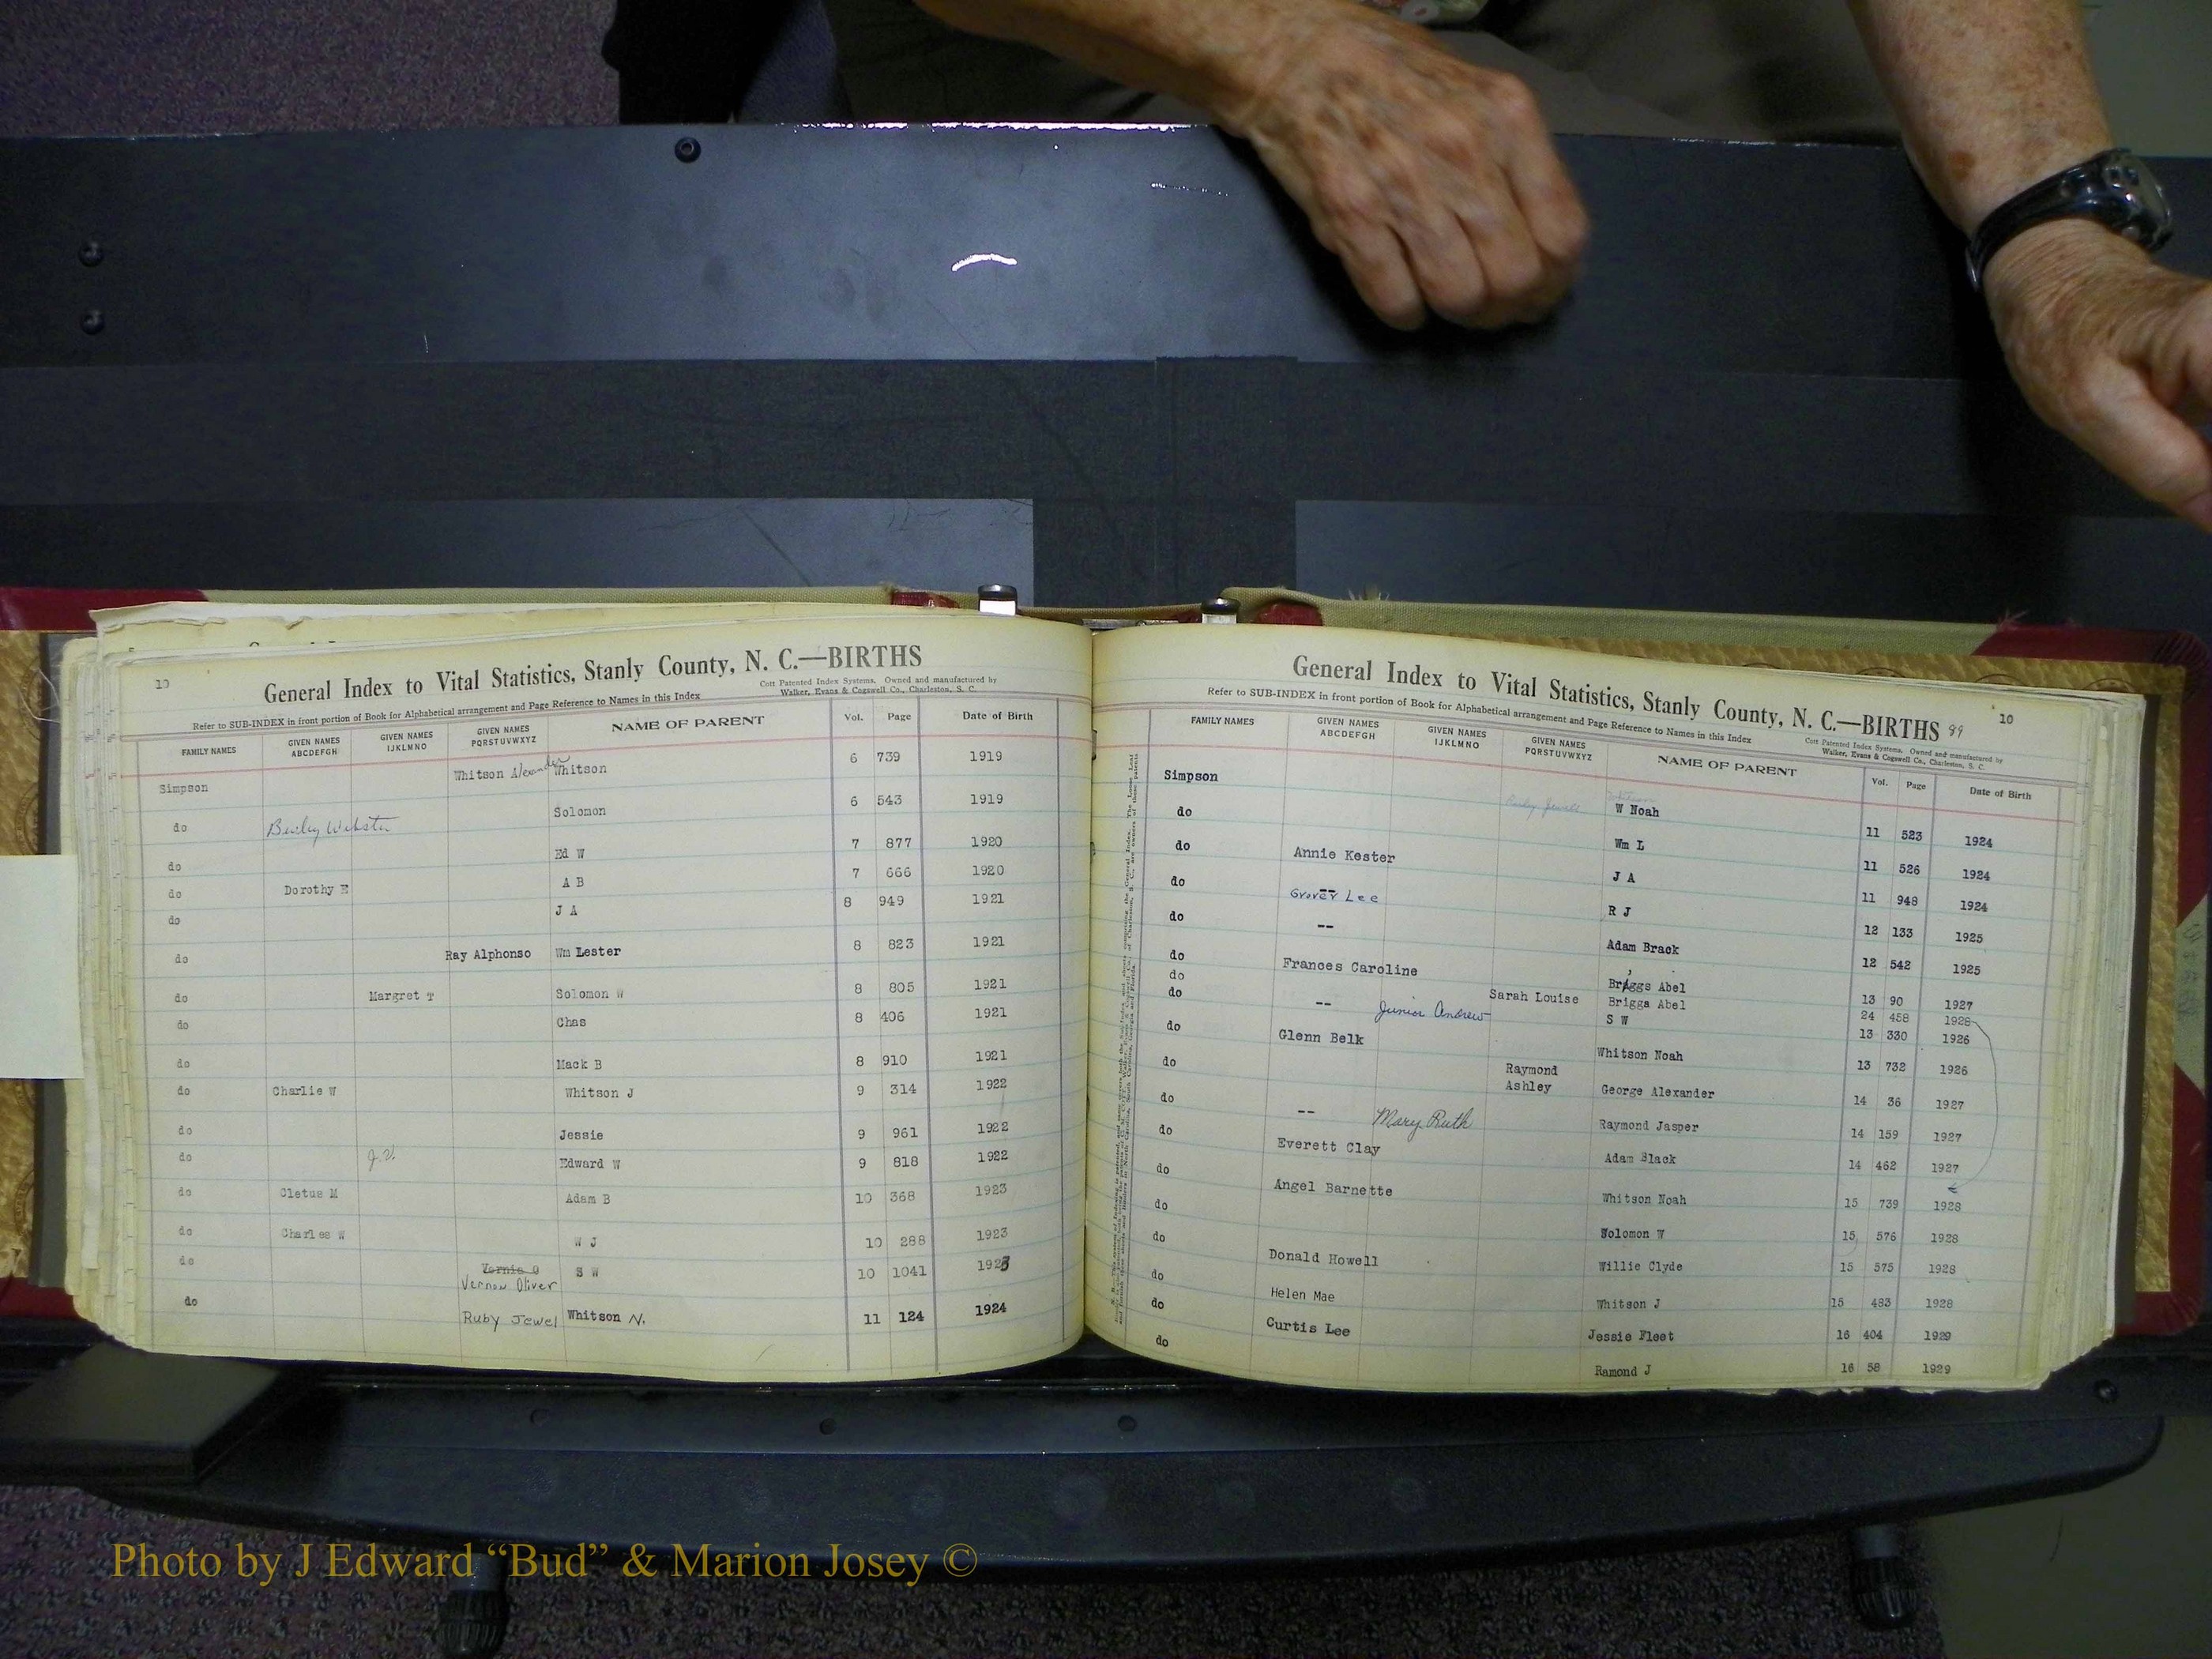 10
General Index to Vital Statistics, Stanly County, N. C.—BIRTHS
Refer to SUB-INDEX in front portion of Book for Alphabetical arrangement and Page Reference to Names in this Index
Cott Patented Index Systems, Owned and manufactured by
Walker, Evans & Cogswell Co., Charleston, S. C.
FAMILY NAMES GIVEN NAMES ABCDEFGH GIVEN NAMES IJKLMNO GIVEN NAMES PQRSTUVWXYZ NAME OF PARENT Vol. Page Date of Birth
Simpson Whitson Alexander Whitson 6 739 1919
do Webster Solomon 6 543 1919
do Ed W 7 877 1920
do Dorothy E A B 7 666 1920
do J A 8 949 1921
do Ray Alphonso Wm Lester 8 823 1921
do Margret T Solomon W 8 805 1921
do Chas 8 406 1921
do Mack B 8 910 1921
do Charlie W Whitson J 9 314 1922
do Jessie 9 961 1922
do J.V. Edward W 9 818 1922
do Cletus M Adam B 10 368 1923
do Charles W W J 10 288 1923
do Vernie O S W 10 1041 1923
Vernon Oliver
do Ruby Jewel Whitson N. 11 124 1924
General Index to Vital Statistics, Stanly County, N. C.—BIRTHS 89 10
Refer to SUB-INDEX in front portion of Book for Alphabetical arrangement and Page Reference to Names in this Index
Cott Patented Index Systems, Owned and manufactured by
Walker, Evans & Cogswell Co., Charleston, S. C.
FAMILY NAMES GIVEN NAMES ABCDEFGH GIVEN NAMES IJKLMNO GIVEN NAMES PQRSTUVWXYZ NAME OF PARENT Vol. Page Date of Birth
Simpson Ruby Jewell Whitson W Noah 11 523 1924
do Wm L 11 526 1924
do Annie Kester J A 11 948 1924
do -- Grover Lee R J 12 133 1925
do -- Adam Brack 12 542 1925
do Frances Caroline Briggs Abel 13 90 1927
do Sarah Louise Briggs Abel 24 458 1928
do -- Junior Andrew S W 13 330 1926
do Glenn Belk Whitson Noah 13 732 1926
do Raymond Ashley George Alexander 14 36 1927
do -- Mary Ruth Raymond Jasper 14 159 1927
do Everett Clay Adam Black 14 462 1927
do Angel Barnette Whitson Noah 15 739 1928
do Solomon W 15 576 1928
do Donald Howell Willie Clyde 15 575 1928
do Helen Mae Whitson J 15 483 1928
do Curtis Lee Jessie Fleet 16 404 1929
do Ramond J 16 58 1929
Photo by J Edward “Bud” & Marion Josey ©